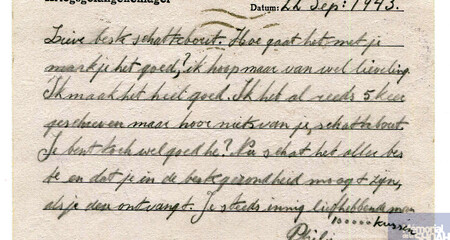 Kriegsgefangenenlager Datum: 22 Sep: 1943.
Lieve beste schattebout. Hoe gaat het met je
maak je het goed? ik hoop maar van wel lieveling.
Ik maak het heel goed. Ik heb al reeds 5 keer
geschreven maar hoor niets van je, schattebout.
Je bent toch wel goed he? Nu schat het alles bes
te en dat je in de beste gezondheid moogt zijn,
als je deze ontvangt. Je steeds innig liefhebbende man
10000 kussen
Philip